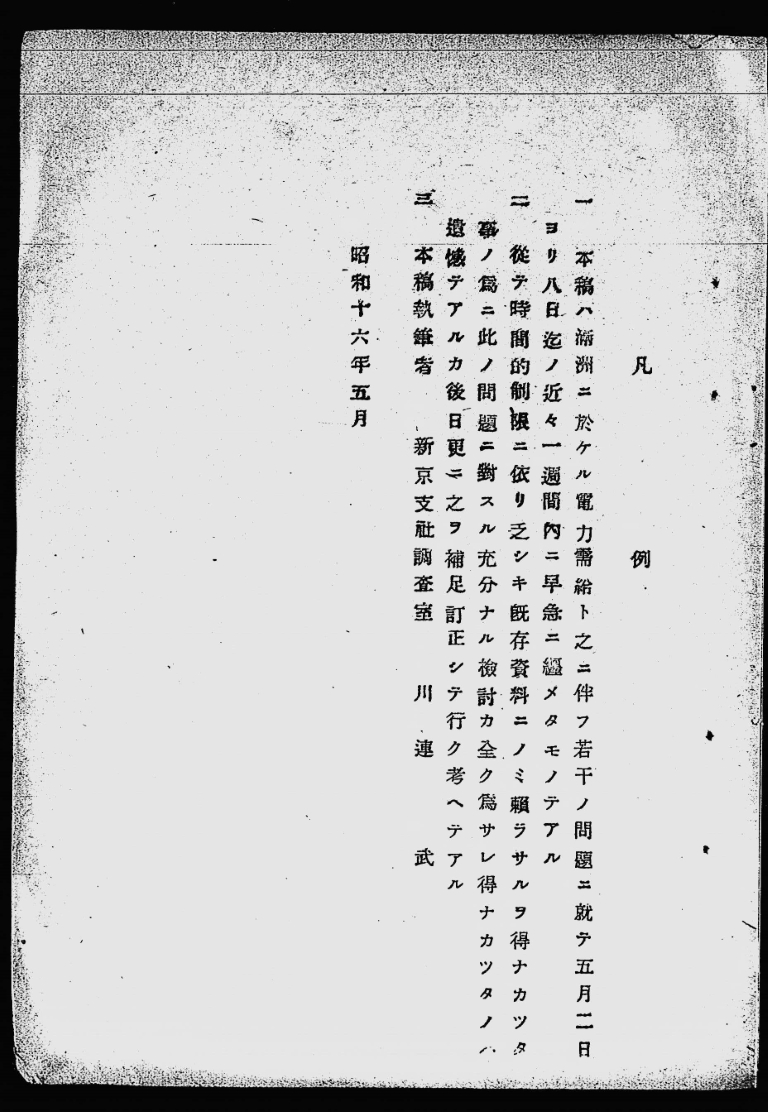 凡例
一　本稿ハ滿洲ニ於ケル電力需給ト之ニ伴フ若干ノ問題ニ就テ五月二日
ヨリ八日迄ノ近々一週間內ニ早急ニ纒メタモノテアル
二　從テ時間的制限ニ依リ乏シキ既存資料ニノミ賴ラサルヲ得ナカツタ
事ノ爲ニ此ノ問題ニ對スル充分ナル檢討カ全ク爲サレ得ナカツタノハ
遺憾テアルカ後日更ニ之ヲ補足訂正シテ行ク考ヘテアル
三　本稿執筆者　新京支社調査室　川連　武
昭和十六年五月